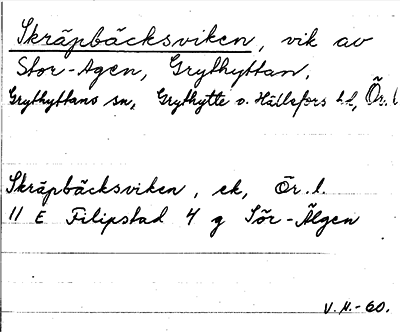 Skräpbäcksviken, vik av
Stor-Agen, Grythyttan,
Grythyttans sn, Grythytte o. Hällefors bl, Ör. l
Skräpbäcksviken, ek, Ör. l.
11 E Filipstad 4 g Sör-Älgen
V.N.-60.